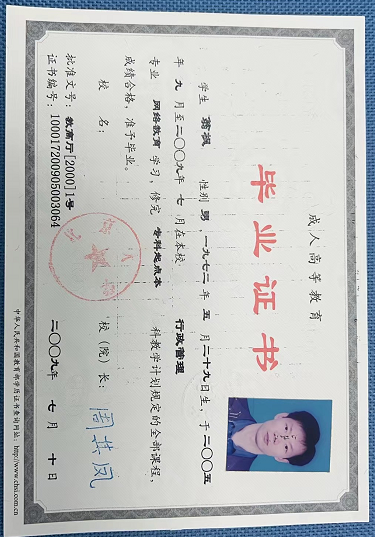 成人高等教育
毕业证书
学生 蒋枫 性别 男,一九七二 年 五 月 二十九日生,于 二〇〇五
年 九 月至 二〇〇九 年 七 月在本校 行政管理
专业 网络教育 学习,修完 专科起点本 科教学计划规定的全部课程,
成绩合格,准予毕业。
校 名: 校(院)长:
批准文号:教高厅[2000]1号
证书编号:100017200905003064 二〇〇九年 七 月 十 日
中华人民共和国教育部学历证书查询网址:http://www.chsi.com.cn